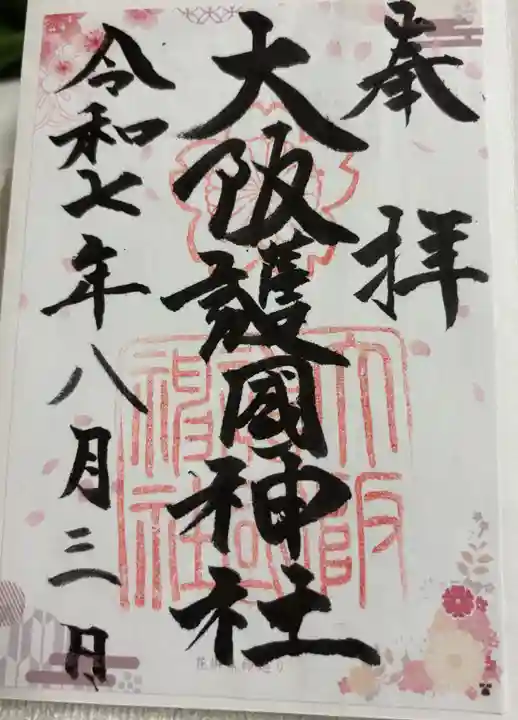 奉拝
大阪護國神社
令和七年八月三日
大阪護國神社